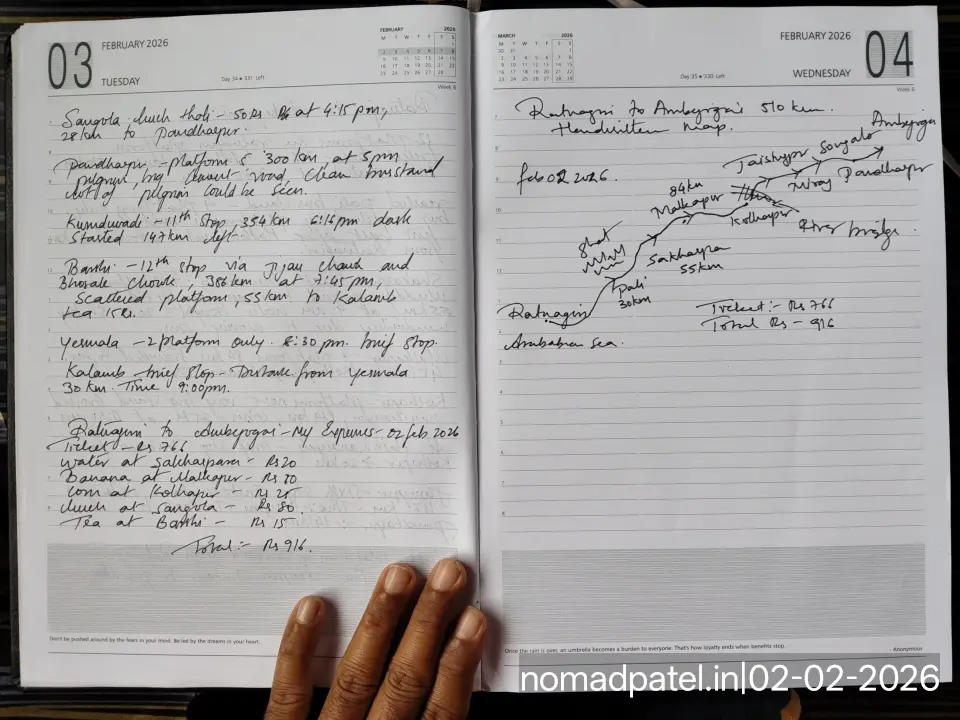 03
FEBRUARY 2026
TUESDAY
Day 34 • 331 Left
FEBRUARY 2026
M T W T F S S
Week 6
Sangola lunch thali - 50 Rs at 4:15 pm,
28 km to Pandharpur.
Pandharpur - platform 5 300 km, at 5 pm
pilgrim, big road, clean busstand
lot of pilgrim could be seen.
Kurduwadi - 11th stop, 354 km 6:16 pm dark
Started 147 km left
Barshi - 12th stop via Jijau chauk and
Bhosale chowk, 386 km at 7:45 pm,
Scattered platform, 55 km to Kalamb
tea 15 Rs.
Yesmala - 2 platform only. 8:30 pm. brief stop.
Kalamb brief stop - Distance from Yesmala
30 km. Time 9:00 pm.
Ratnagiri to Ambejogai - My Expenses - 02 feb 2026
Ticket - Rs 766
water at Sakharpara - Rs 20
Banana at Malkapur - Rs
corn at Kolhapur - Rs
lunch at Sangola - Rs 80.
Tea at Barshi - Rs 15
Total:- Rs 916.
Don't be pushed around by the fears in your mind. Be led by the dreams in your heart.
MARCH 2026
M T W T F S S
Day 35 • 330 Left
FEBRUARY 2026
WEDNESDAY
04
Week 6
Ratnagiri to Ambejogai 510 km.
Handwritten map.
feb 02 2026.
Ambejogai
Jaisingpur Sangola
Miraj Pandharpur
84 km
Malkapur
Kolhapur
River bridge.
ghat
Sakharpa
55 km
Pali
30 km
Ratnagiri
Ticket:- Rs 766
Total Rs - 916
Arababian Sea.
Once the rain is over, an umbrella becomes a burden to everyone. That's how loyalty ends when benefits stop.
- Anonymous
nomadpatel.in|02-02-2026